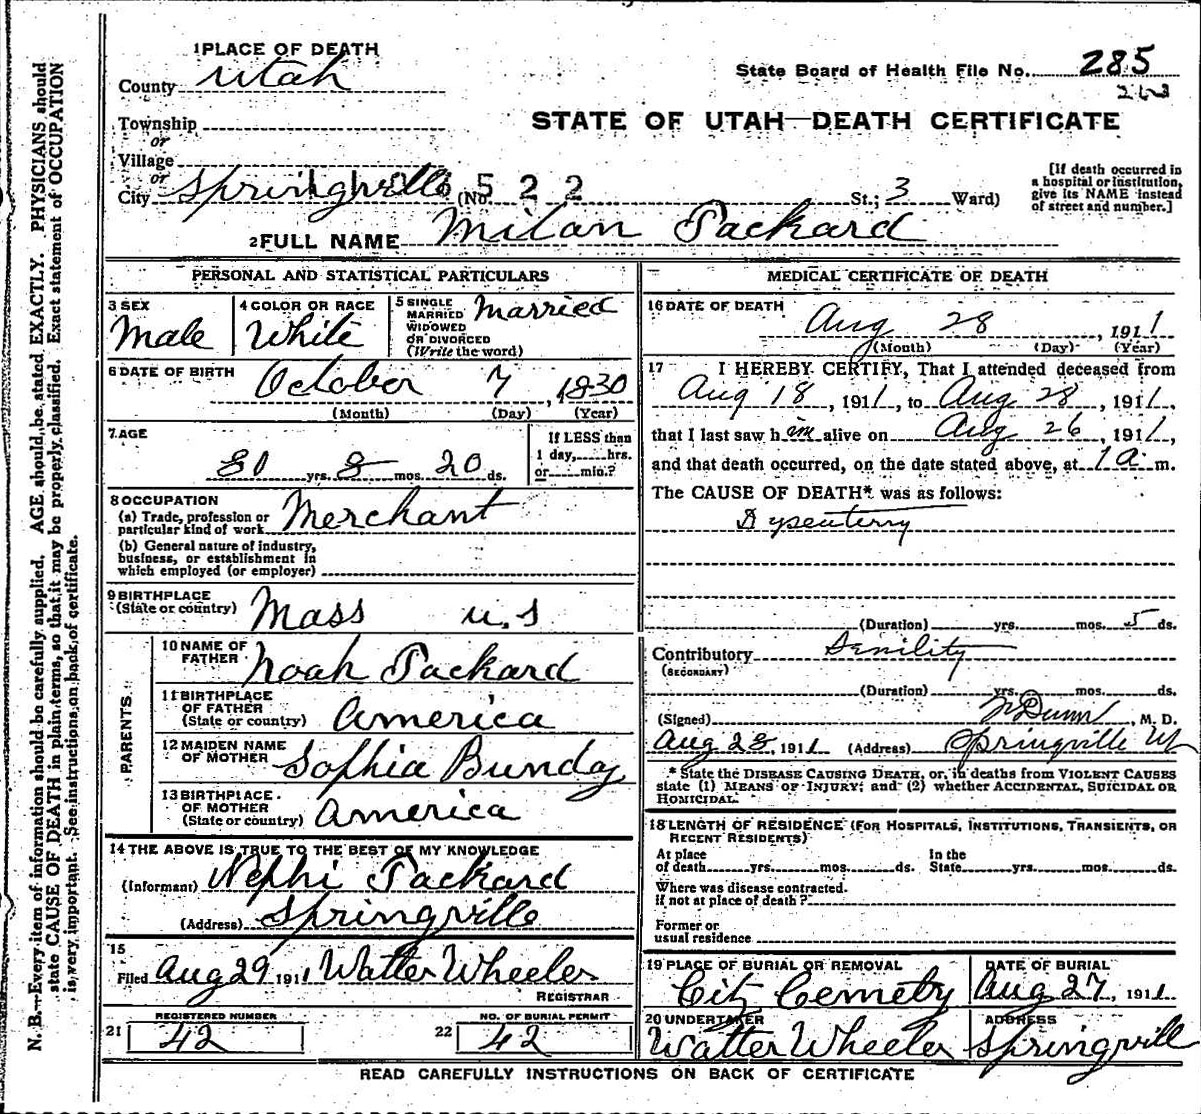 1 PLACE OF DEATH
County Utah
State Board of Health File No. 285
Township
or
STATE OF UTAH—DEATH CERTIFICATE
Village
or
City Springville (No. 522 St.; 3 Ward)
[If death occurred in
a hospital or institution,
give its NAME instead
of street and number.]
2 FULL NAME Milan Packard
PERSONAL AND STATISTICAL PARTICULARS
3 SEX
Male
4 COLOR OR RACE
White
5 SINGLE
MARRIED
WIDOWED
OR DIVORCED
(Write the word)
Married
6 DATE OF BIRTH
October 7, 1830
(Month) (Day) (Year)
7 AGE
80 yrs. 8 mos. 20 ds.
If LESS than
1 day, hrs.
or min.?
8 OCCUPATION
(a) Trade, profession or
particular kind of work Merchant
(b) General nature of industry,
business, or establishment in
which employed (or employer)
9 BIRTHPLACE
(State or country) Mass U.S
PARENTS
10 NAME OF
FATHER Noah Packard
11 BIRTHPLACE
OF FATHER
(State or country) America
12 MAIDEN NAME
OF MOTHER Sophia Bunday
13 BIRTHPLACE
OF MOTHER
(State or country) America
14 THE ABOVE IS TRUE TO THE BEST OF MY KNOWLEDGE
(Informant) Nephi Packard
(Address) Springville
15
Filed Aug 29 1911 Walter Wheeler
REGISTRAR
REGISTERED NUMBER
21 42
NO. OF BURIAL PERMIT
22 42
MEDICAL CERTIFICATE OF DEATH
16 DATE OF DEATH
Aug 28, 1911
(Month) (Day) (Year)
17 I HEREBY CERTIFY, That I attended deceased from
Aug 18, 1911, to Aug 28, 1911,
that I last saw him alive on Aug 26, 1911,
and that death occurred, on the date stated above, at 1 a m.
The CAUSE OF DEATH* was as follows:
Dysenterry
(Duration) yrs. mos. 5 ds.
Contributory Senility
(SECONDARY)
(Duration) yrs. mos. ds.
(Signed) Dunn, M. D.
Aug 28, 1911 (Address) Springville Ut
* State the DISEASE CAUSING DEATH, or, in deaths from VIOLENT CAUSES
state (1) MEANS OF INJURY; and (2) whether ACCIDENTAL, SUICIDAL OR
HOMICIDAL.
18 LENGTH OF RESIDENCE (FOR HOSPITALS, INSTITUTIONS, TRANSIENTS, OR
RECENT RESIDENTS)
At place
of death yrs. mos. ds.
In the
State yrs. mos. ds.
Where was disease contracted.
if not at place of death?
Former or
usual residence
19 PLACE OF BURIAL OR REMOVAL
City Cemetry
DATE OF BURIAL
Aug 27, 1911
20 UNDERTAKER
Walter Wheeler
ADDRESS
Springville
READ CAREFULLY INSTRUCTIONS ON BACK OF CERTIFICATE
N. B.—Every item of information should be carefully supplied. AGE should be stated EXACTLY. PHYSICIANS should
state CAUSE OF DEATH in plain terms, so that it may be properly classified. Exact statement of OCCUPATION
is very important. See instructions on back of certificate.